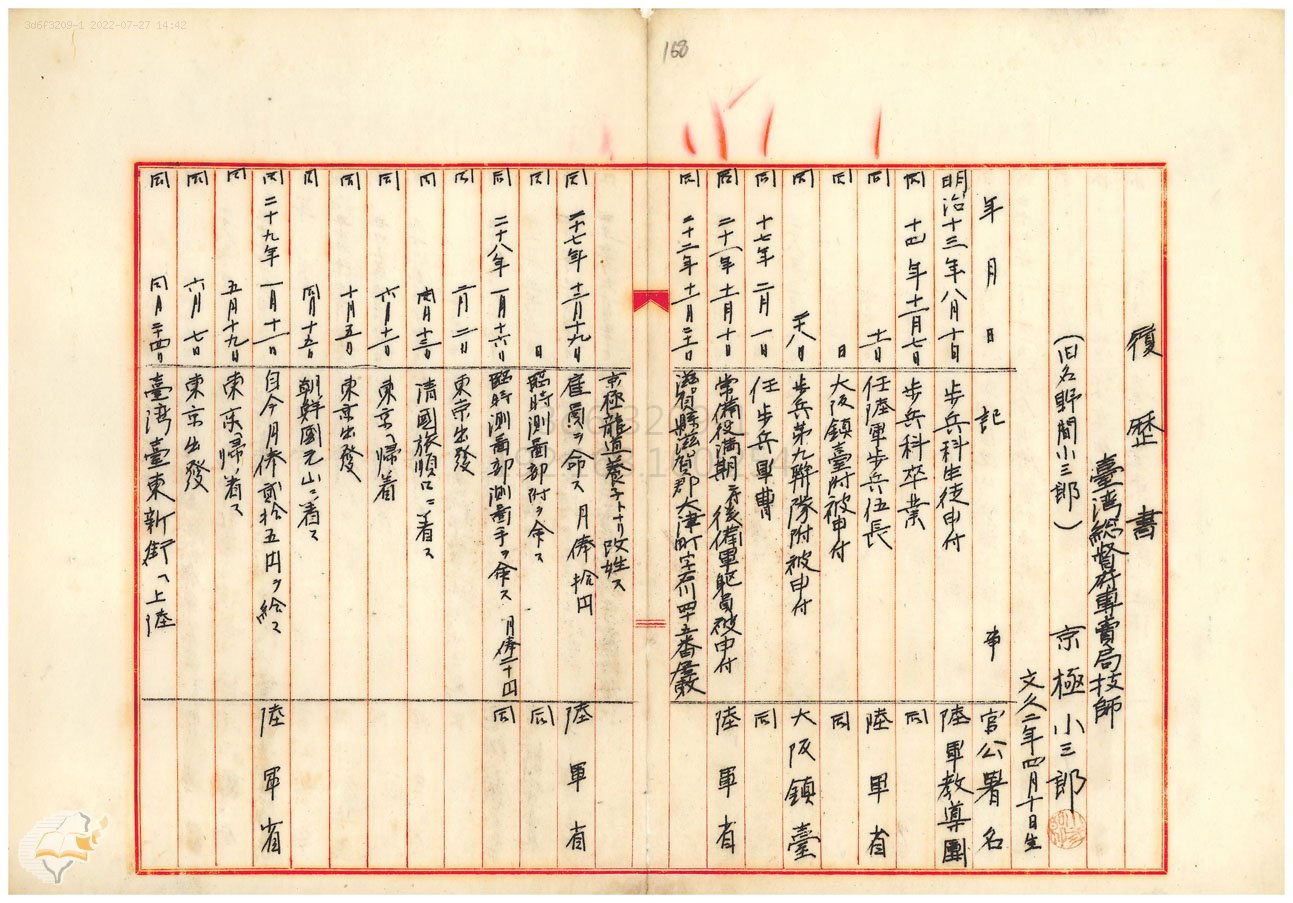 3d6f3209-1 2022-07-27 14:42
168
履歴書
臺湾総督府專賣局技師
(旧名野間小三郎) 京極小三郎
文久二年四月十日生
年月日 記事 官公署名
明治十三年八月十日 歩兵科生徒申付 陸軍教導團
同 十四年十二月七日 歩兵科卒業 同
同 任陸軍歩兵伍長 陸軍省
同 日 大阪鎮臺附被申付 同
同 歩兵第九聯隊附被申付 大阪鎮臺
同 十七年二月一日 任歩兵軍曹 同
同 二十一年十二月十日 常備役満期 後備軍軀員被申付 陸軍省
同 二十二年 滋賀縣滋賀郡大津町字石川四十五番屋敷
京極龍道養子トナリ改姓ス
同 二十七年十二月十九日 雇員ヲ命ス月俸拾円 陸軍省
同 日 臨時測畵部附ヲ命ス 同
同 二十八年一月十六日 臨時測畵部測畵手ヲ命ス 月俸二十円 同
同 二月二日 東京出發
同 同月十三日 清國旅順口ニ着ス
同 東京ヘ帰着
同 十月五日 東京出發
同 同月十五日 朝鮮國元山ニ着ス
同 二十九年一月十一日 自今月俸貳拾五円ヲ給ス 陸軍省
同 五月十九日 東京帰着ス
同 六月七日 東京出發
同 同月二十四日 臺湾臺東新街ヘ上陸